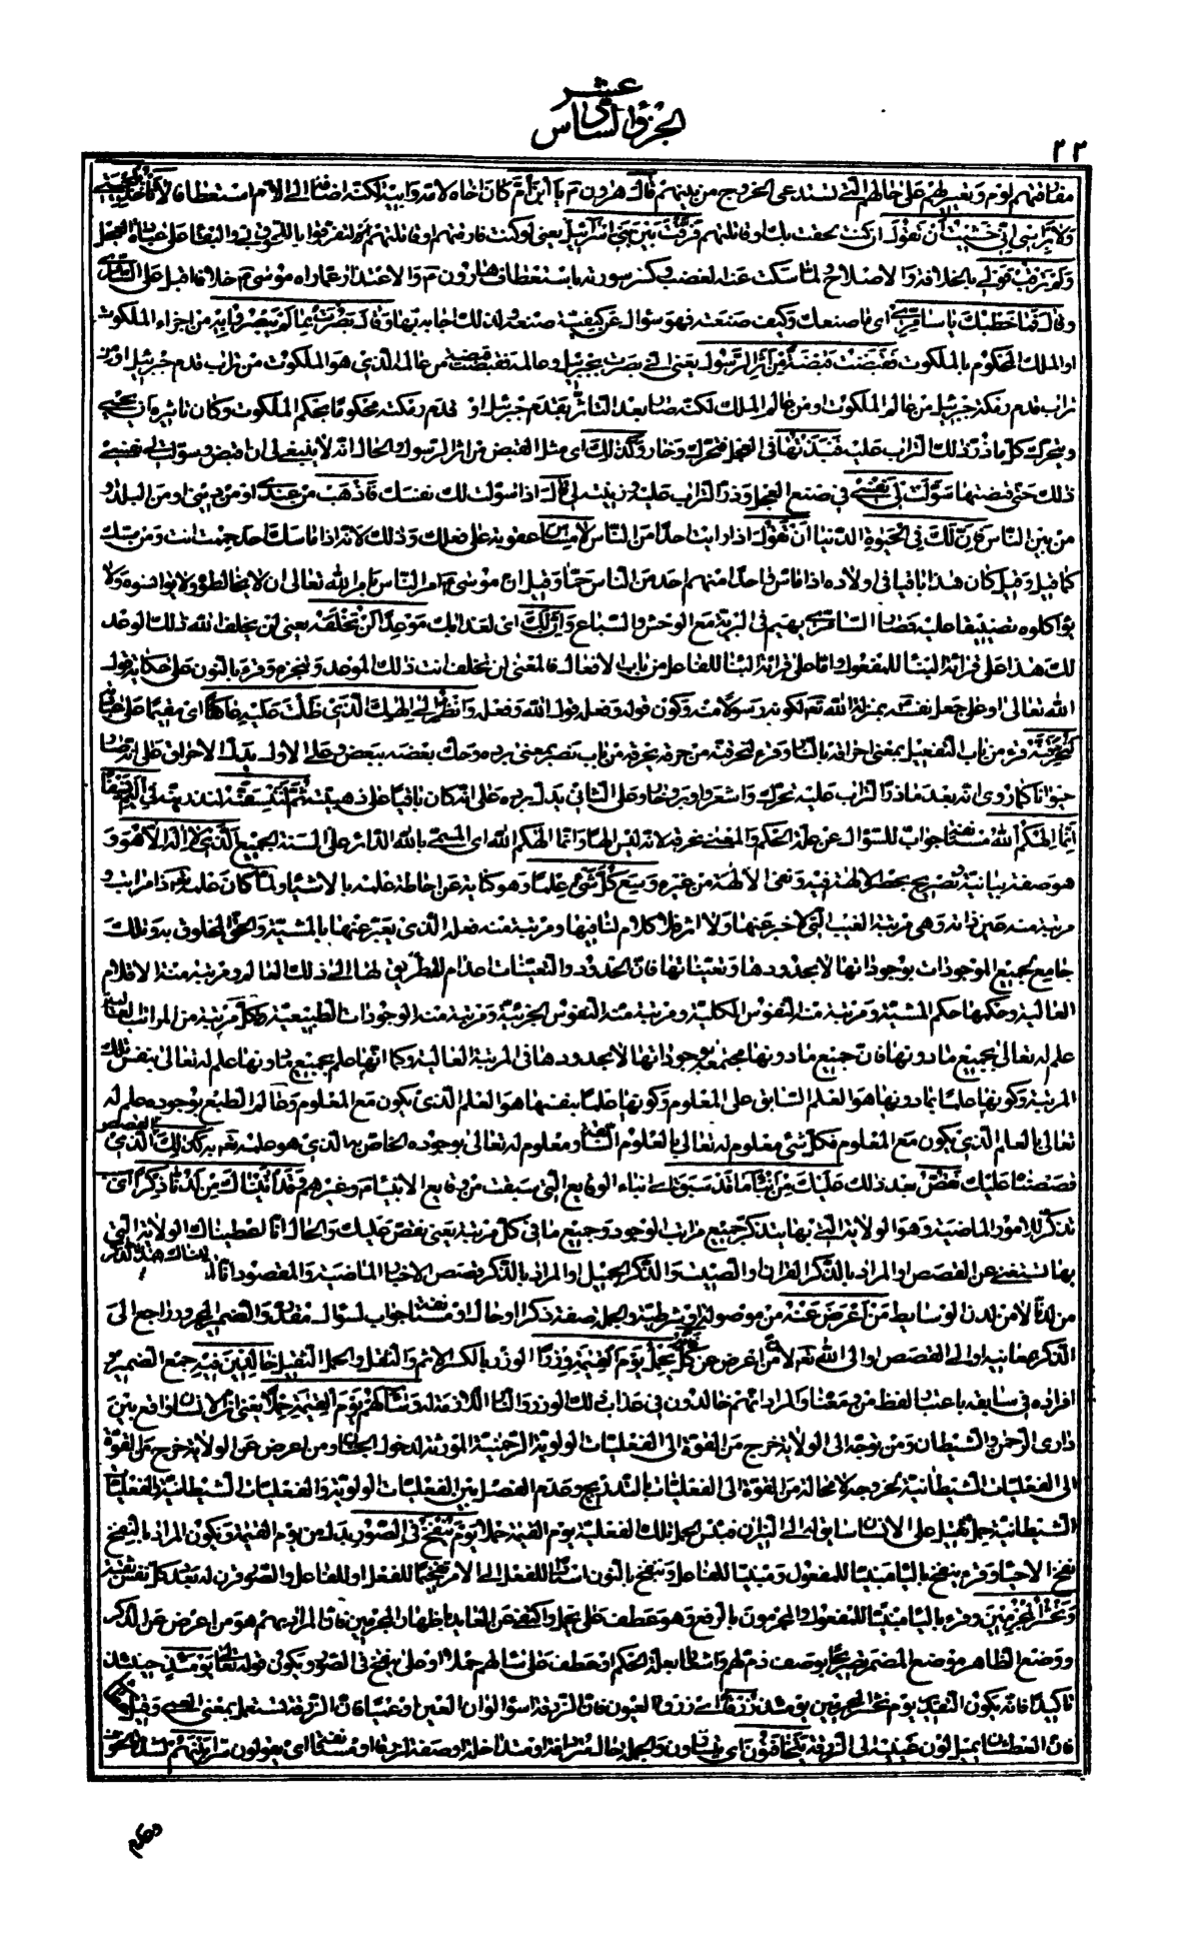 عشر
الجزؤ السادس
٢٢
قال هرون يا ابن ام كان اخاه لامه وابيه لكنه اضافه الى الام استعطافا لا تأخذ بلحيتي
ولا برأسي اني خشيت ان تقول ان كنت لحقت بك او قاتلتهم فرقت بين بني اسرائيل يعني لو كنت فارقتهم او قاتلتهم
ولم ترقب قولي بالخلافة والاصلاح لما سكت عنه الغضب وكسر سورته باستعطاف هارون والاعتذار عما راه موسى
وقال فما خطبك يا سامري اي ما صنعك وكيف صنعته فهو سؤال عن كيفية صنعته ولذلك اجابه بها وقال بصرت بما لم يبصروا به من اجزاء الملكوت
او الملك المحكوم بالملكوت فقبضت قبضة من اثر الرسول يعني اني بصرت بجبرئيل وعالمه فقبضت قبضة من عالمه الذي هو الملكوت من تراب قدم جبرئيل او من
تراب قدم رمكة جبرئيل من عالم الملكوت او من عالم الملك لكنه صار بعد التأثر بقدم جبرئيل او قدم رمكته محكوما بحكم الملكوت وكان تأثيره ان يحيى
ويتحرك كل ما ذر ذلك التراب عليه فنبذتها في العجل فتحرك وخار وكذلك اي مثل القبض من اثر الرسول والحال انه لا ينبغي لي ان اقبض وسولت لي نفسي
ذلك حتى قبضتها سولت لي نفسي في صنع العجل وذر التراب عليه وزينته لي قال اذا سولت لك نفسك فاذهب من عندي او من ديني او من البلد او
من بين الناس فان لك في الحيوة الدنيا ان تقول اذا رايت احدا من الناس لا مساس عقوبة على فعلك وذلك لانه اذا ماسك احد حممت انت ومن مسك
كما قيل وقيل كان هذا باقيا في اولاده اذا ماس واحدا منهم احد من الناس حما وقيل ان موسى امر الناس بامر الله تعالى ان لا يخالطوه ولا يؤانسوه ولا
يؤاكلوه تضييقا عليه فصار السامري يهيم في البرية مع الوحش والسباع وان لك اي لعذابك موعدا لن تخلفه يعني لن يخلف الله ذلك الموعد
لك هذا على قراءة البناء للمفعول واما على قراءة البناء للفاعل من باب الافعال فالمعنى لن تخلف انت ذلك الموعد وقرء بالنون على حكاية قول
الله تعالى او على جعل نفسه بمنزلة الله لكونه رسولا منه وكون قوله وفعله قول الله وفعله وانظر الى الهك الذي ظلت عليه عاكفا اي مقيما على عبادته
لنحرقنه قرء من باب التفعيل بمعنى احراقه بالنار وقرء لنحرقنه من حرقه يحرقه من باب نصر بمعنى برده وحك بعضه ببعض
حيوانا كما روى انه بعد ما ذر التراب عليه تحرك واشعر واوبر وخار وعلى الثاني يدل برده على انه كان باقيا على ذهبيته ثم لننسفنه لنذرينه في اليم نسفا
انما الهكم الله مستأنف جواب للسؤال عن علة الحكم والمعنى نحرقه لانه ليس الها وانما الهكم الله اي المسمى بالله الدائر على السنة الجميع الذي لا اله الا هو و
هو صفة بيانية وتصريح بحصر الالهة فيه ونفي الالهة من غيره وسع كل شيء علما وهو كناية عن احاطة علمه بالاشياء ولما كان علمه ذا مراتب و
مرتبة منه عين ذاته وهي مرتبة الغيب التي لا خبر عنها ولا اثر فلا كلام لنا فيها ومرتبة منه فعله الذي يعبر عنها بالمشية والحق المخلوق به وذلك
جامع لجميع الموجودات بوجوداتها لا بحدودها وتعيناتها فان الحدود والتعينات اعدام لا طريق لها الى ذلك العالم ومرتبة منه الاقلام
العالية وحكمها حكم المشية ومرتبة منه النفوس الكلية ومرتبة منه النفوس الجزئية ومرتبة منه الوجودات الطبيعية وكل مرتبة من المراتب العالية
علم له تعالى بجميع ما دونها فان جميع ما دونها مجتمعة بوجوداتها لا بحدودها في المرتبة العالية وكما انها علم بجميع ما دونها علم له تعالى بنفس تلك
المرتبة وكونها علما بما دونها هو العلم السابق على المعلوم وكونها علما بنفسها هو العلم الذي يكون مع المعلوم وعالم الطبع بوجوده علم له
تعالى بالعلم الذي يكون مع المعلوم فكل شيء معلوم له تعالى بالعلوم السابقة ومعلوم له تعالى بوجوده الخاص به الذي هو علمه به كذلك الذي
قصصنا عليك نقص بعد ذلك عليك من انباء ما قد سبق اي انباء الوقايع التي سبقت من وقايع الانبياء وغيرهم وقد اتيناك من لدنا ذكرا اي
تذكرا للامور الماضية وهو الولاية التي بها يتذكر جميع مراتب الوجود وجميع ما في كل مرتبة يعني نقص عليك والحال انا اعطيناك الولاية التي
بها يستغنى عن القصص او المراد بالذكر القرآن والصيت والذكر الجميل او المراد بالذكر قصص الاخبار الماضية والمقصود انا
من لدنا لا من لدن الوسايط من اعرض عنه من موصولة او شرطية والجملة صفة ذكرا او حال او مستأنفة جواب لسؤال مقدر والضمير المجرور راجع الى
الذكر بمعانيه او الى القصص او الى الله من اعرض عن كل فانه يحمل يوم القيمة وزرا الوزر بالكسر الاثم والثقل والحمل الثقيل خالدين فيه جمع الضمير
افراده في سابقه باعتبار لفظ من ومعناه والمراد انهم خالدون في عذاب ذلك الوزر وساء لهم يوم القيمة حملا يعني ان الانسان واقع بين
داري الرحمن والشيطان ومن توجه الى الولاية خرج من القوة الى الفعليات الولوية الرحمنية المورثة لدخول الجنان ومن اعرض عن الولاية خرج من القوة
الى الفعليات الشيطانية لخروجه لا محالة من القوة الى الفعليات بالتدريج وعدم الفصل بين الفعليات الولوية والفعليات الشيطانية والفعليات
الشيطانية حمل ثقيل على الانسان سابق له الى النيران فبئس الحمل تلك الفعلية يوم القيمة حملا يوم ينفخ في الصور بدل من يوم القيمة ويكون المراد بالنفخ
نفخ الاحياء وقرء ينفخ بالياء مبنيا للمفعول ومبنيا للفاعل وننفخ بالنون
ونحشر المجرمين وقرء بالياء مبنيا للمفعول والمجرمون بالرفع وهو عطف على يحمل واكتفى عن العايد باظهار المجرمين فان المراد بهم هو من اعرض عن الذكر
ووضع الظاهر موضع المضمر
تأكيدا فانه يكون التقييد يوم نحشر المجرمين يومئذ زرقا اي زرق العيون فان الزرقة اسوء الوان العين او عميا فان الزرقة تستعمل بمعنى العمى وقيل
يتخافتون اي يتسارون والجملة حال